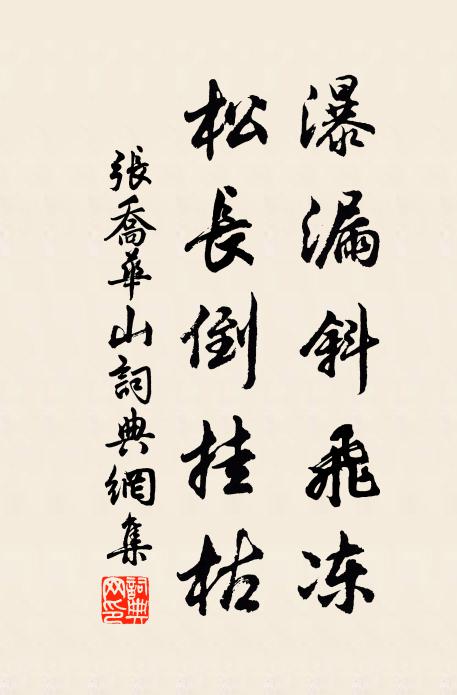 瀑漏斜飛冻
松長倒挂枯
張喬華山詞典網集
詞典网印